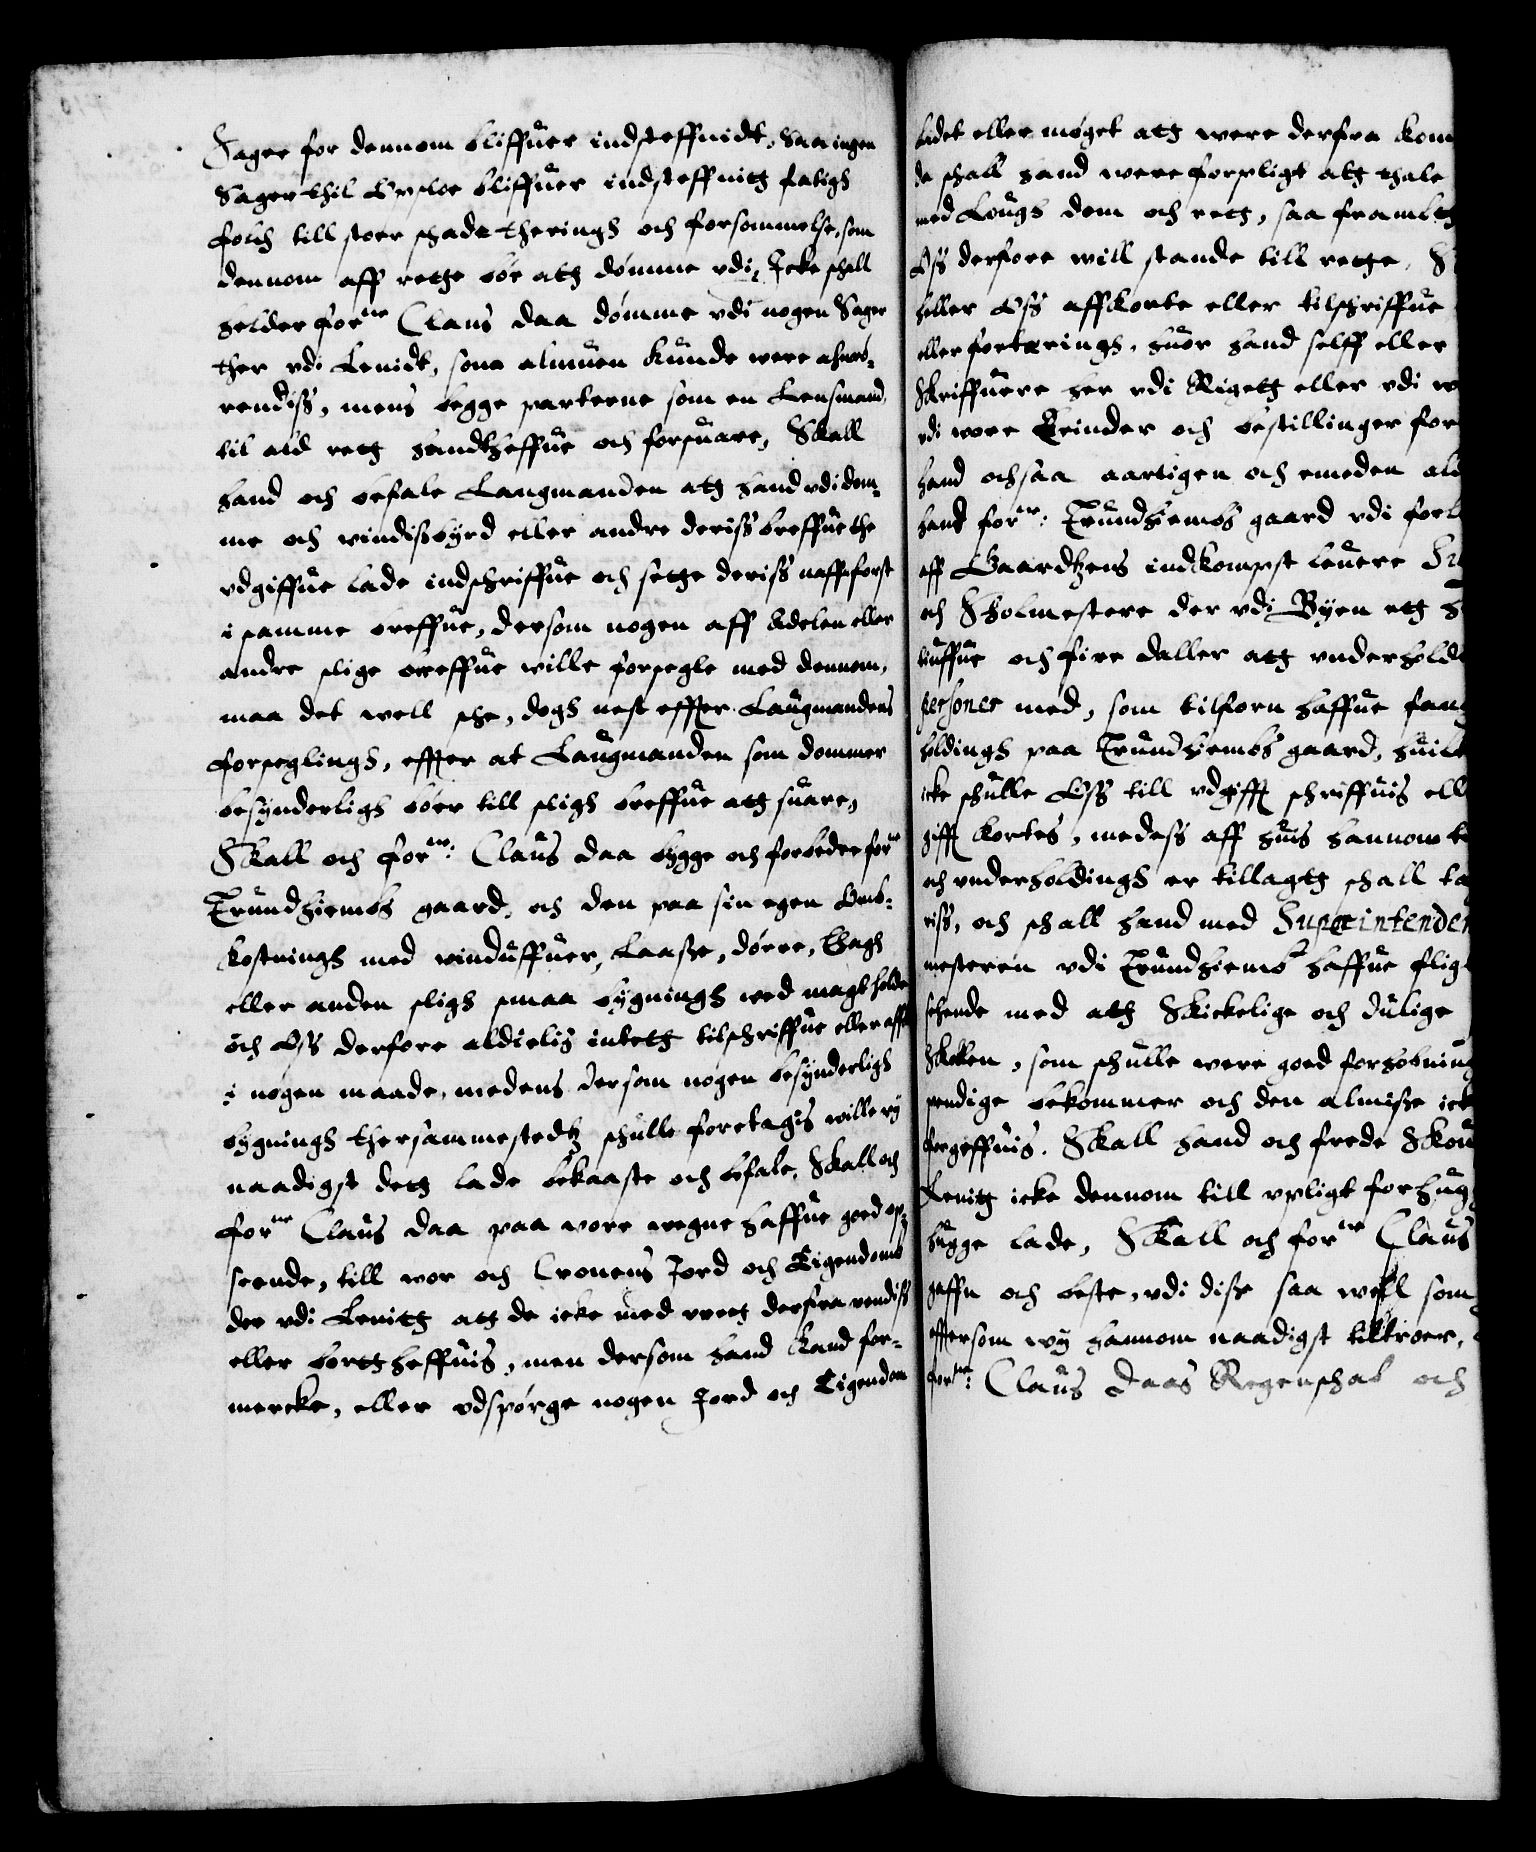 Sager for dennom bliffuer indsteffnidt, Saa ingen
Sager thil Opsloe bliffuer indsteffnitt fatigh
folch till stoer schade theringh och forsømmelse, som
dennom aff rette bør att dømme vdi, Icke schall
heller forne Claus Daa dømme vdi nogen Sager
ther vdi Lenidt, som almuen kunde were
rendiss, mens begge parterne som en Lensmand,
til ald rett handtheffue och forsuare, Skall
hand och befale Laugmanden att hand vdi dom-
me och vindisbyrd eller andre deriss breffue the
vdgiffue lade indschriffue och sette deriss naffn først
i samme breffue, dersom nogen aff Adelen eller
andre slige breffue wille forsegle med dennom,
maa det well sche, dogh nest effter Laugmandens
forseglingh, effter at Laugmanden som dommer
besynderligh bøer till sligh breffue att suare,
Skall och forne: Claus Daa bygge och forbedre forne
Trundhiembs gaard, och den paa sin egen Omb-
kostningh med vinduffuer, Laasse, dørre, Thagh
eller anden sligh smaa bygningh wed magt holde
och Oss derfore aldielis intett tilschriffue eller affk
i nogen maade, medens dersom nogen besynderligh
bygningh thersammestedtz schulle foretagis wille wy
naadigst dett lade bekaaste och befale, Skall och
forne Claus Daa paa wore wegne haffue goed op-
seende, till wor och Cronens Jord och Eigendomb
der vdi Lenitt att de icke med vrett derfra wendiss
eller bortt heffuis, men dersom hand kand for-
mercke, eller vdspørge nogen Jord och Eigendom
ladet eller møget att were derfra kom
da schall hand were forpligt att thale
med Lough dom och rett, saa frambt
Oss derfore will stande till rette, S
heller Oss affkorte eller tilschriffue
eller forteringh, huor hand selff eller
Skriffuere her vdi Rigett eller vdi
vdi wore Erinder och bestillinger for
hand ochsaa aarligen och emeden al
hand forne: Trundhiembs gaard vdi forl
aff Gaardtzens indkompst leuere Su
och Skolmestere der vdi Byen ett
tuffue och fire daller att vnderhold
personer med, som tilforn haffue fan
holdingh paa Trundhiembs gaard, huilk
icke schulle Oss till vdgifft schriffuis ell
gifft kortes, medess aff huis hannom t
och vnderholdingh er tillagtt schall ta
riss, och schall hand med Superintenden
mesteren vdi Trundhiemb haffue fligt
seende med att Skickelige och dulige
Skollen, som schulle were goed forhobning
pendige bekommer och den almisse ick
forgeffuis. Skall hand och frede Skou
Lenitt icke dennom till vpligt forhug
hugge lade, Skall och forne Claus
gaffn och beste, vdi disse saa well som
effersom wy hannom naadigst tiltroer,
forne: Claus Daas Regenschab och